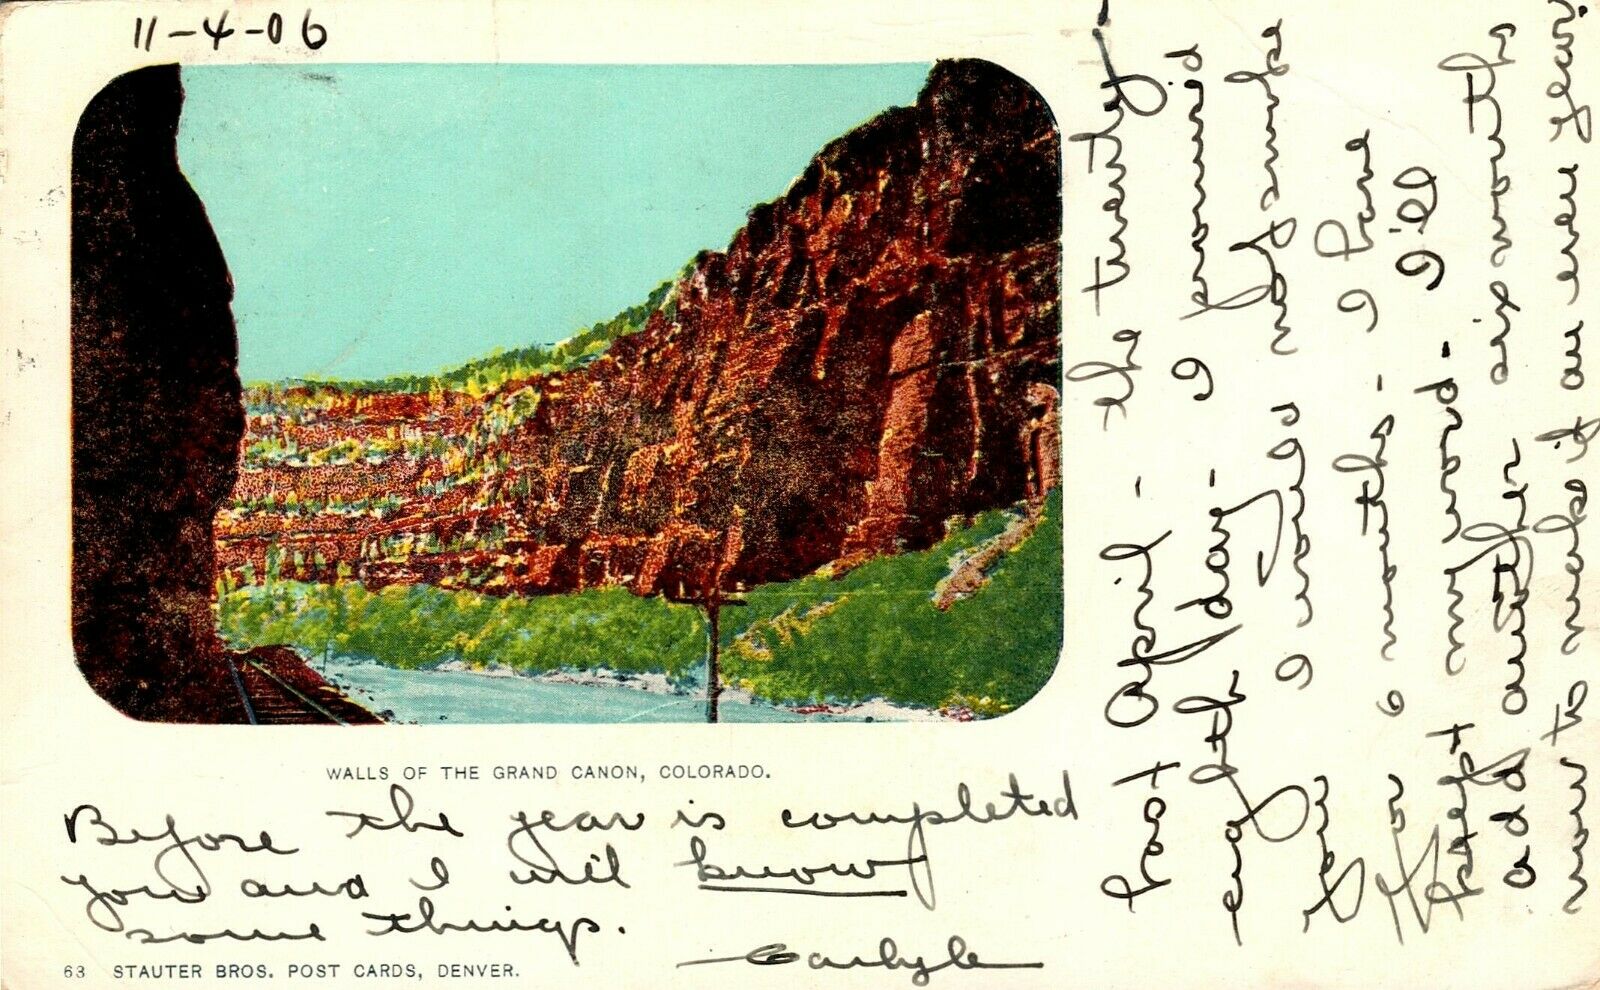 11-4-06
WALLS OF THE GRAND CANON, COLORADO.
Before the year is completed
you and I will know
some things.
— Carlyle
63 STAUTER BROS. POST CARDS, DENVER.
Last April - the twenty-
eighth day - I promised
you I would not smoke
for 6 months - I have
kept my word - I'll
add another six months
now to make it an even year.